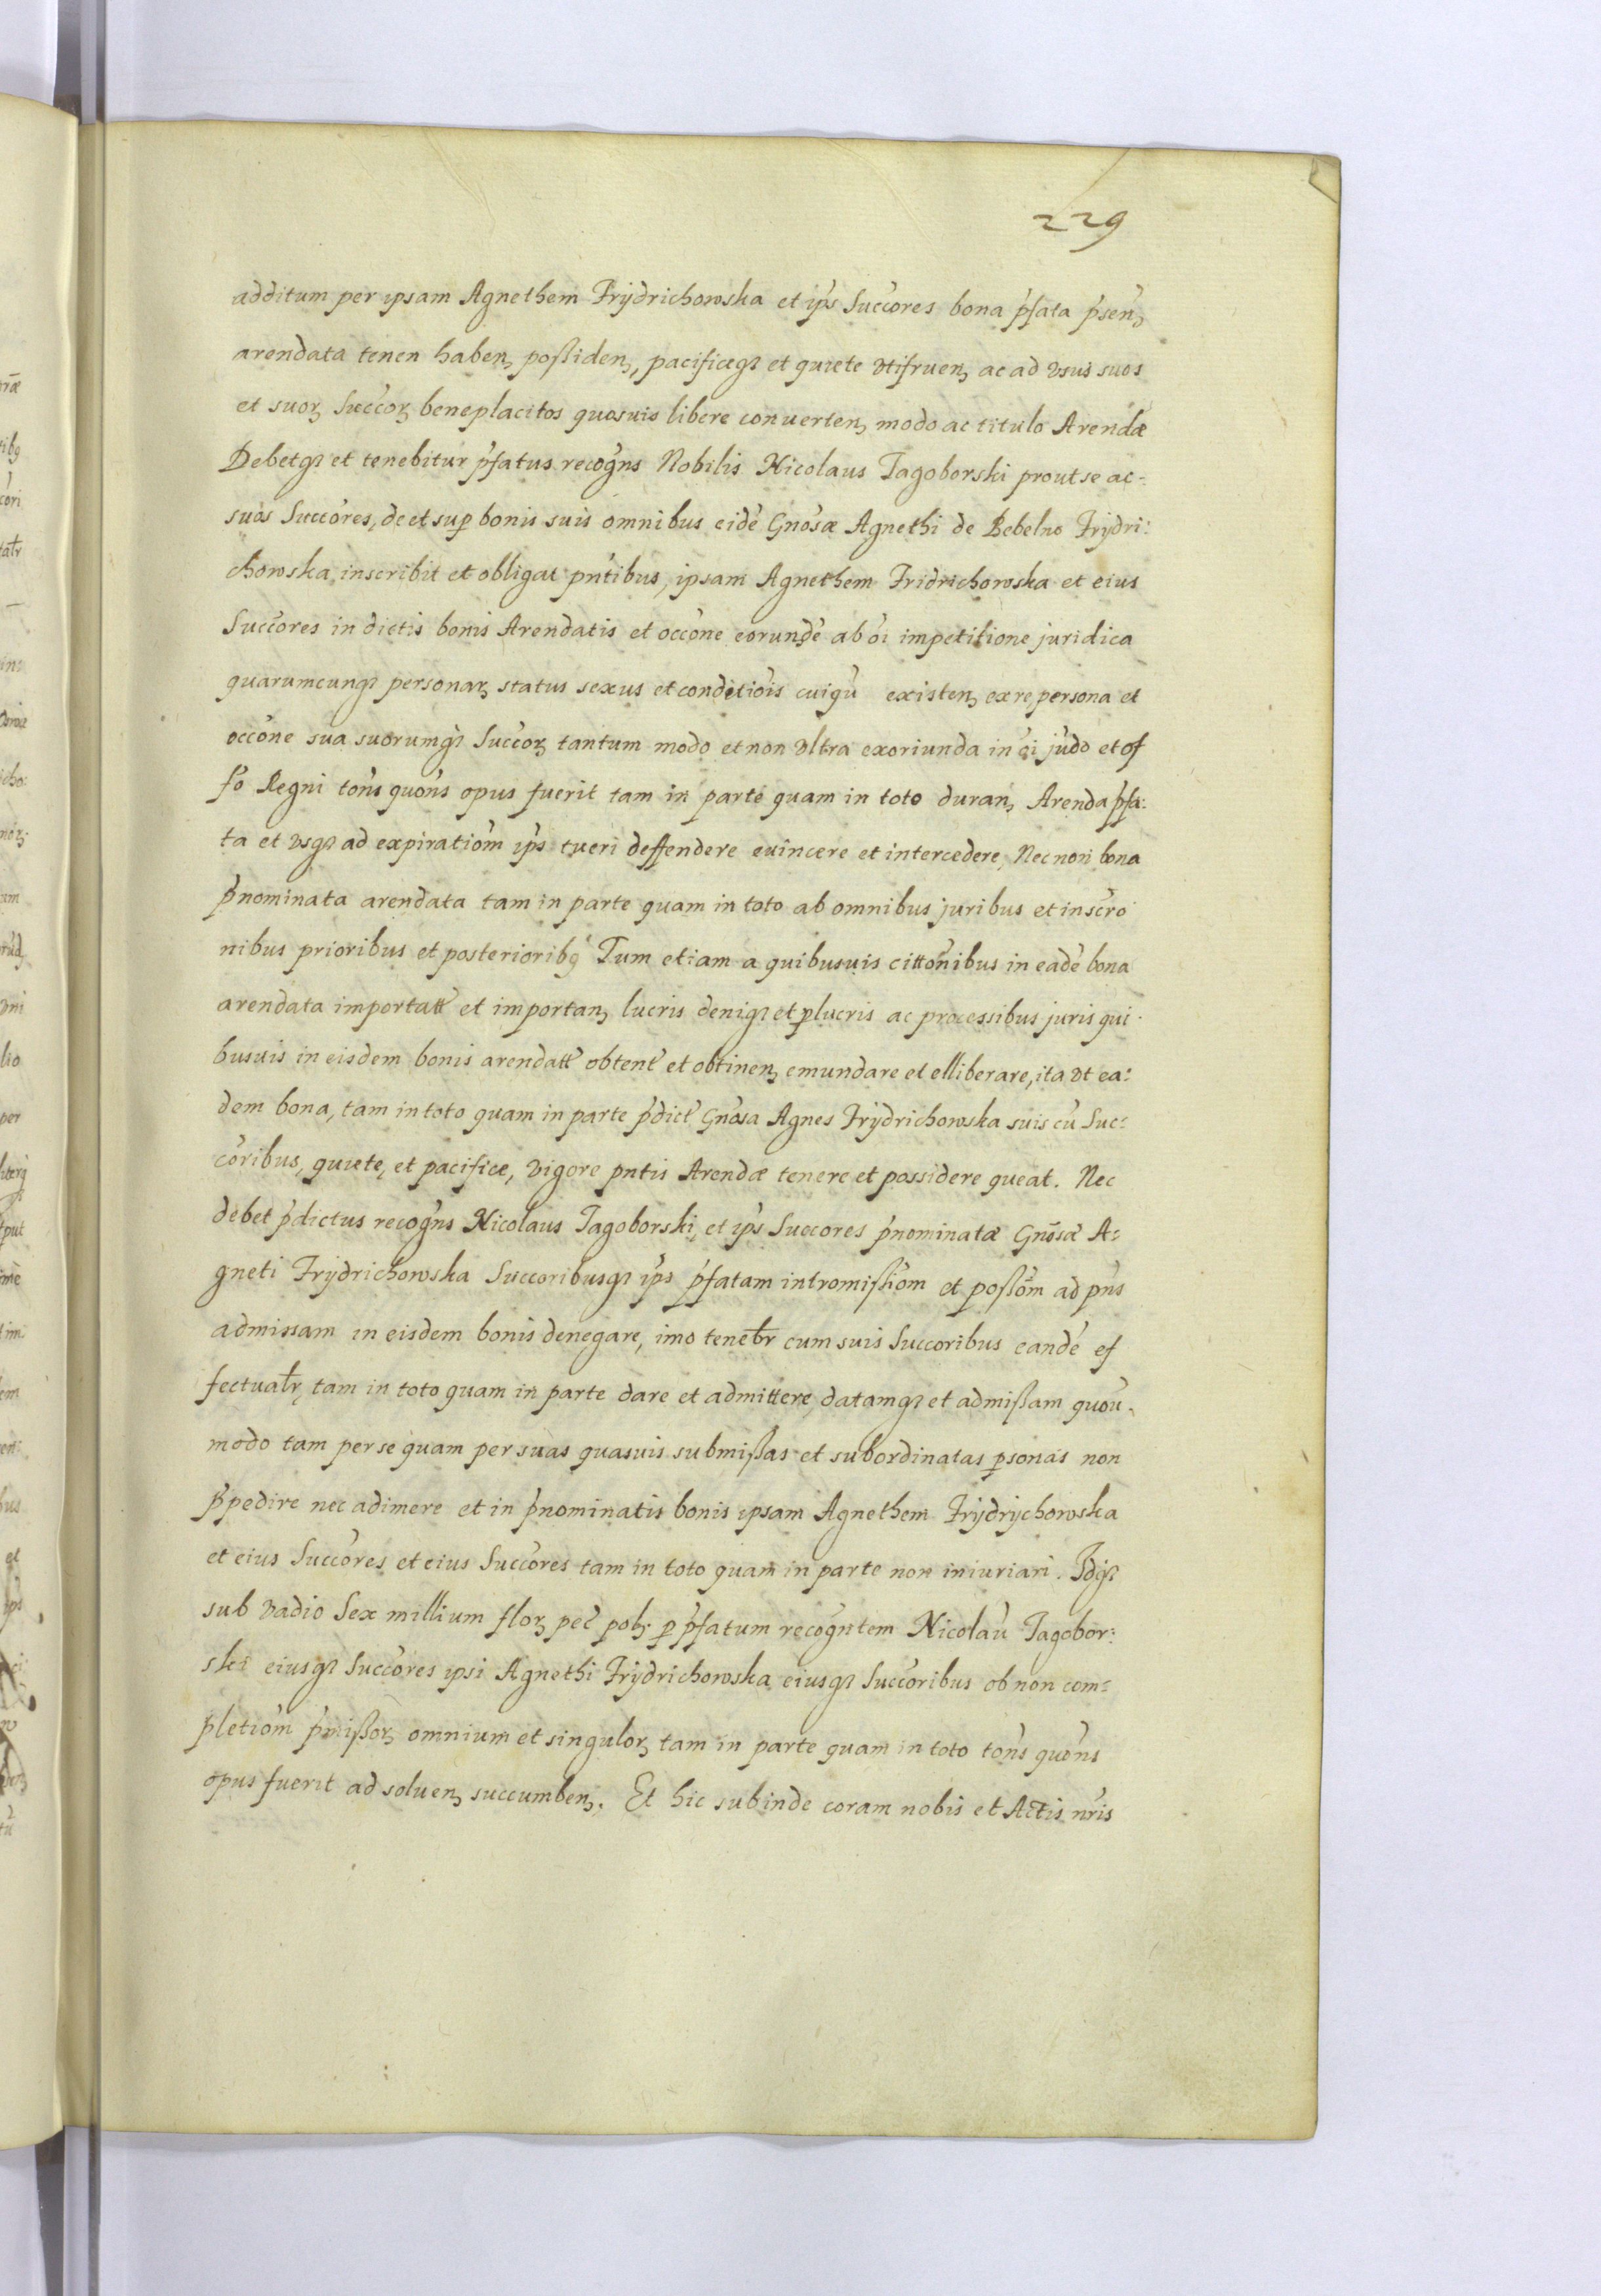 229
additum per ipsam Agnethem Frÿdrichowska et ip̃s Succ̃ores bona p̃fata p̃senꝫ
arendata tenen habenꝫ poßidenꝫ, pacificeqꝫ et quiete vtifruenꝫ ac ad vsus suos
et suoꝝ Succ̃oꝝ beneplacitos quosuis libere conuertenꝫ modo ac titulo Arendæ
Debetqꝫ et tenebitur p̃fatus recog̃ns Nobilis Nicolaus Jagoborski prout se ac-
suos Succ̃ores, de et suꝑ bonis suis omnibus eidẽ Gñosæ Agnethi de Bebelno Frÿdri:
chowska inscribit et obligat pñtibus, ipsam Agnethem Fridrichowska et eius
Succ̃ores in dictis bonis Arendatis et occõne eorundẽ ab õi impetitione juridica
quarumcunqꝫ personaꝝ status sexus et conditiõis cuiqũ existenꝫ ex re persona et
occõne sua suorumqꝫ Succ̃oꝝ tantum modo et non vltra exoriunda in q̃i jũdo et of
fõ Regni tõns quõns opus fuerit tam in parte quam in toto duranꝫ Arenda p̃fa:
ta et vsqꝫ ad expiratiõm ip̃s tueri deffendere euincere et intercedere, Nec non bona
p̃nominata arendata tam in parte quam in toto ab omnibus juribus et inscr̃o
nibus prioribus et posterioribꝯ Tum etiam a quibusuis cittõnibus in eadẽ bona
arendata importatt̃ et importanꝫ lucris deniqꝫ et ꝑlucris ac processibus juris qui-
busuis in eisdem bonis arendatt̃ obtent̃ et obtinenꝫ emundare et elliberare, ita vt ea:
dem bona, tam in toto quam in parte p̃dict̃ Gñosa Agnes Frÿdrichowska suis cũ Suc:
c̃oribus, quiete, et pacifice, vigore pñtis Arendæ tenere et possidere queat. Nec
debet p̃dictus recog̃ns Nicolaus Jagoborski, et ip̃s Succores p̃nominatæ Gñosæ A:
gneti Frÿdrichowska Succoribusqꝫ ip̃s p̃fatam intromißiõm et poßõm ad pñs
admissam in eisdem bonis denegare, imo teneb̃r cum suis Succoribus eandẽ ef
fectual̃r, tam in toto quam in parte dare et admittere, datamqꝫ et admißam quoũ-
modo tam per se quam per suas quasuis submißas et subordinatas ꝑsonas non
p̃pedire nec adimere et in p̃nominatis bonis ipsam Agnethem Frÿdrÿchowska
et eius Succ̃ores et eius Succ̃ores tam in toto quam in parte non iniuriari. Idqꝫ
sub vadio Sex millium floꝝ pec̃ polꝫ ꝑ p̃fatum recog̃ntem Nicolaũ Jagobor:
ski eiusqꝫ Succ̃ores ipsi Agnethi Frÿdrichowska eiusqꝫ Succ̃oribus ob non com:
pletiõm p̃mißoꝝ omnium et singuloꝝ tam in parte quam in toto tõns quõns
opus fuerit ad soluenꝫ succumbenꝫ. Et hic subinde coram nobis et Actis nr̃is